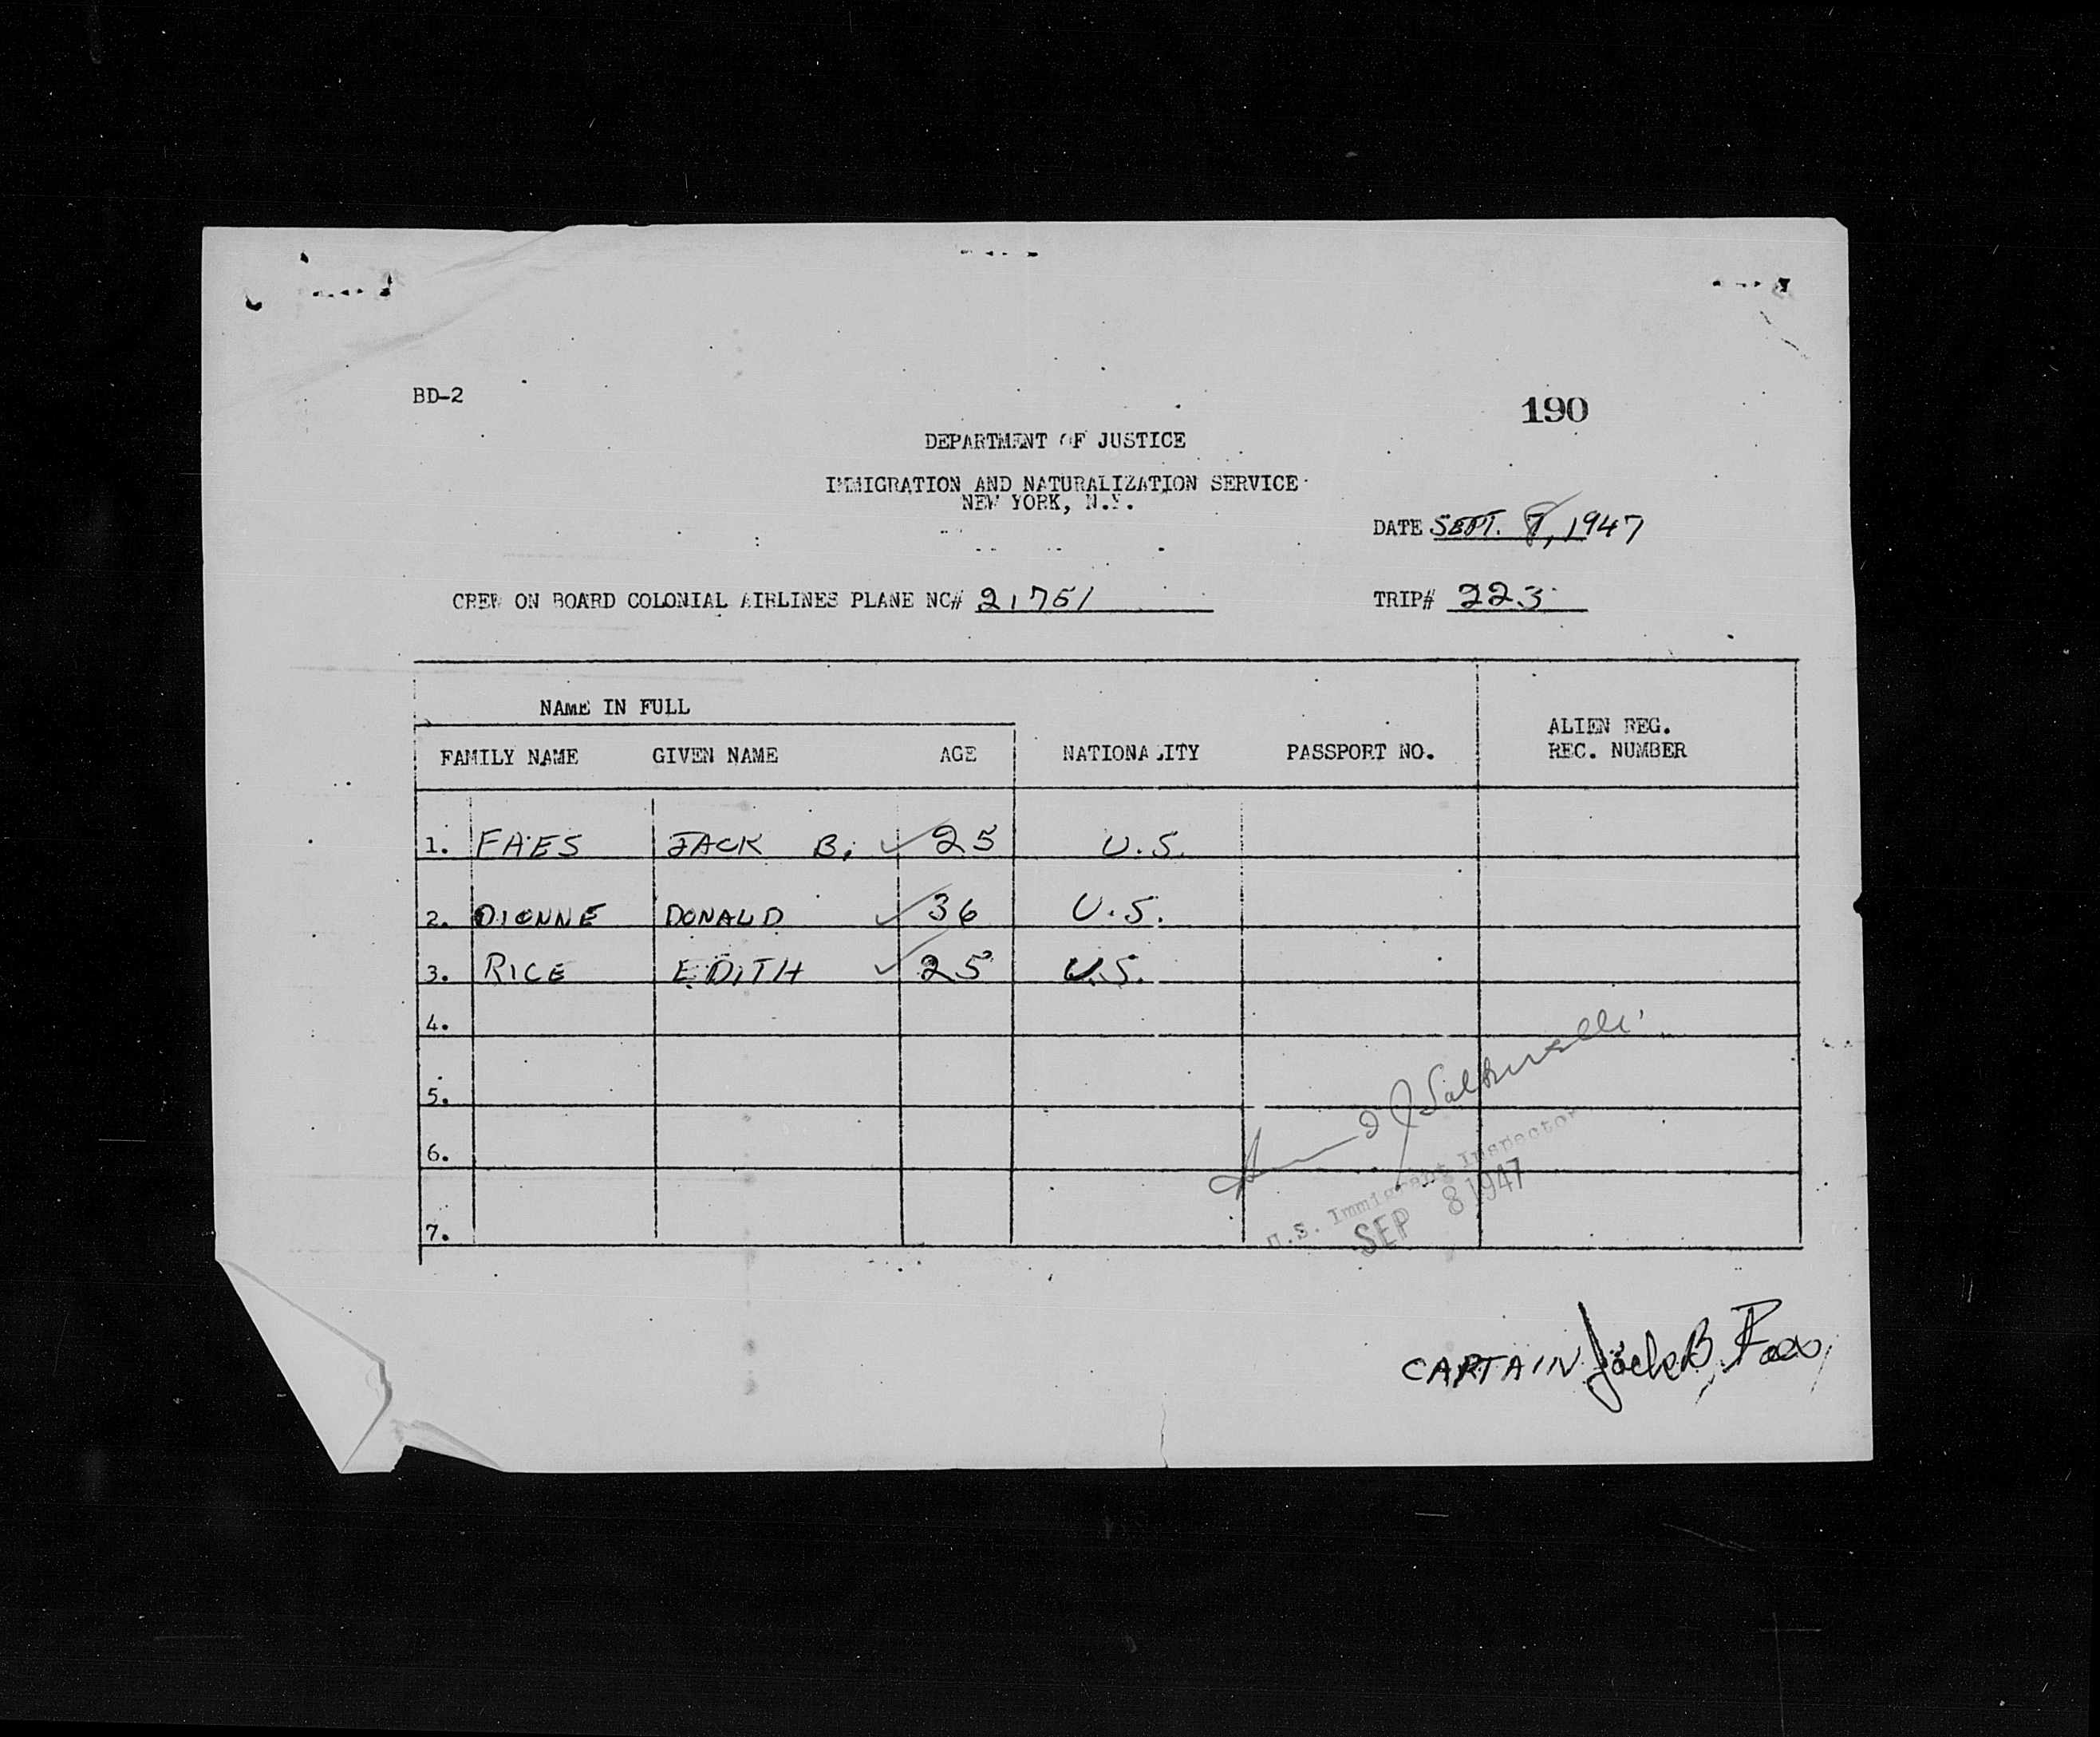 BD-2
190
DEPARTMENT OF JUSTICE
IMMIGRATION AND NATURALIZATION SERVICE
NEW YORK, N.Y.
DATE SEPT. 8, 1947
CREW ON BOARD COLONIAL AIRLINES PLANE NC# 21751 TRIP# 223
NAME IN FULL
FAMILY NAME GIVEN NAME AGE NATIONALITY PASSPORT NO. ALIEN REG. REC. NUMBER
1. FAES JACK B. ✓ 25 U.S.
2. DIONNE DONALD ✓ 36 U.S.
3. RICE EDITH ✓ 25 U.S.
4.
5.
6.
7.
U.S. Immigrant Inspector
SEP 8 1947
CAPTAIN Jack B. Faes